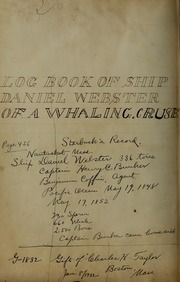 LOG BOOK OF SHIP
DANIEL WEBSTER
OF A WHALING, CRUSE
Page 426 Starbuck's Record
Nantucket, Mass
Ship Daniel Webster 336 tons
Captain Henry C. Bunker
Benjamin Coffin, Agent
Pacific Ocean May 19, 1848
May 17, 1852
Sperm
Whale
2,500 Bone
Captain Bunker came home sick
G-1852 Gift of Charles H. Taylor
Boston
Mass